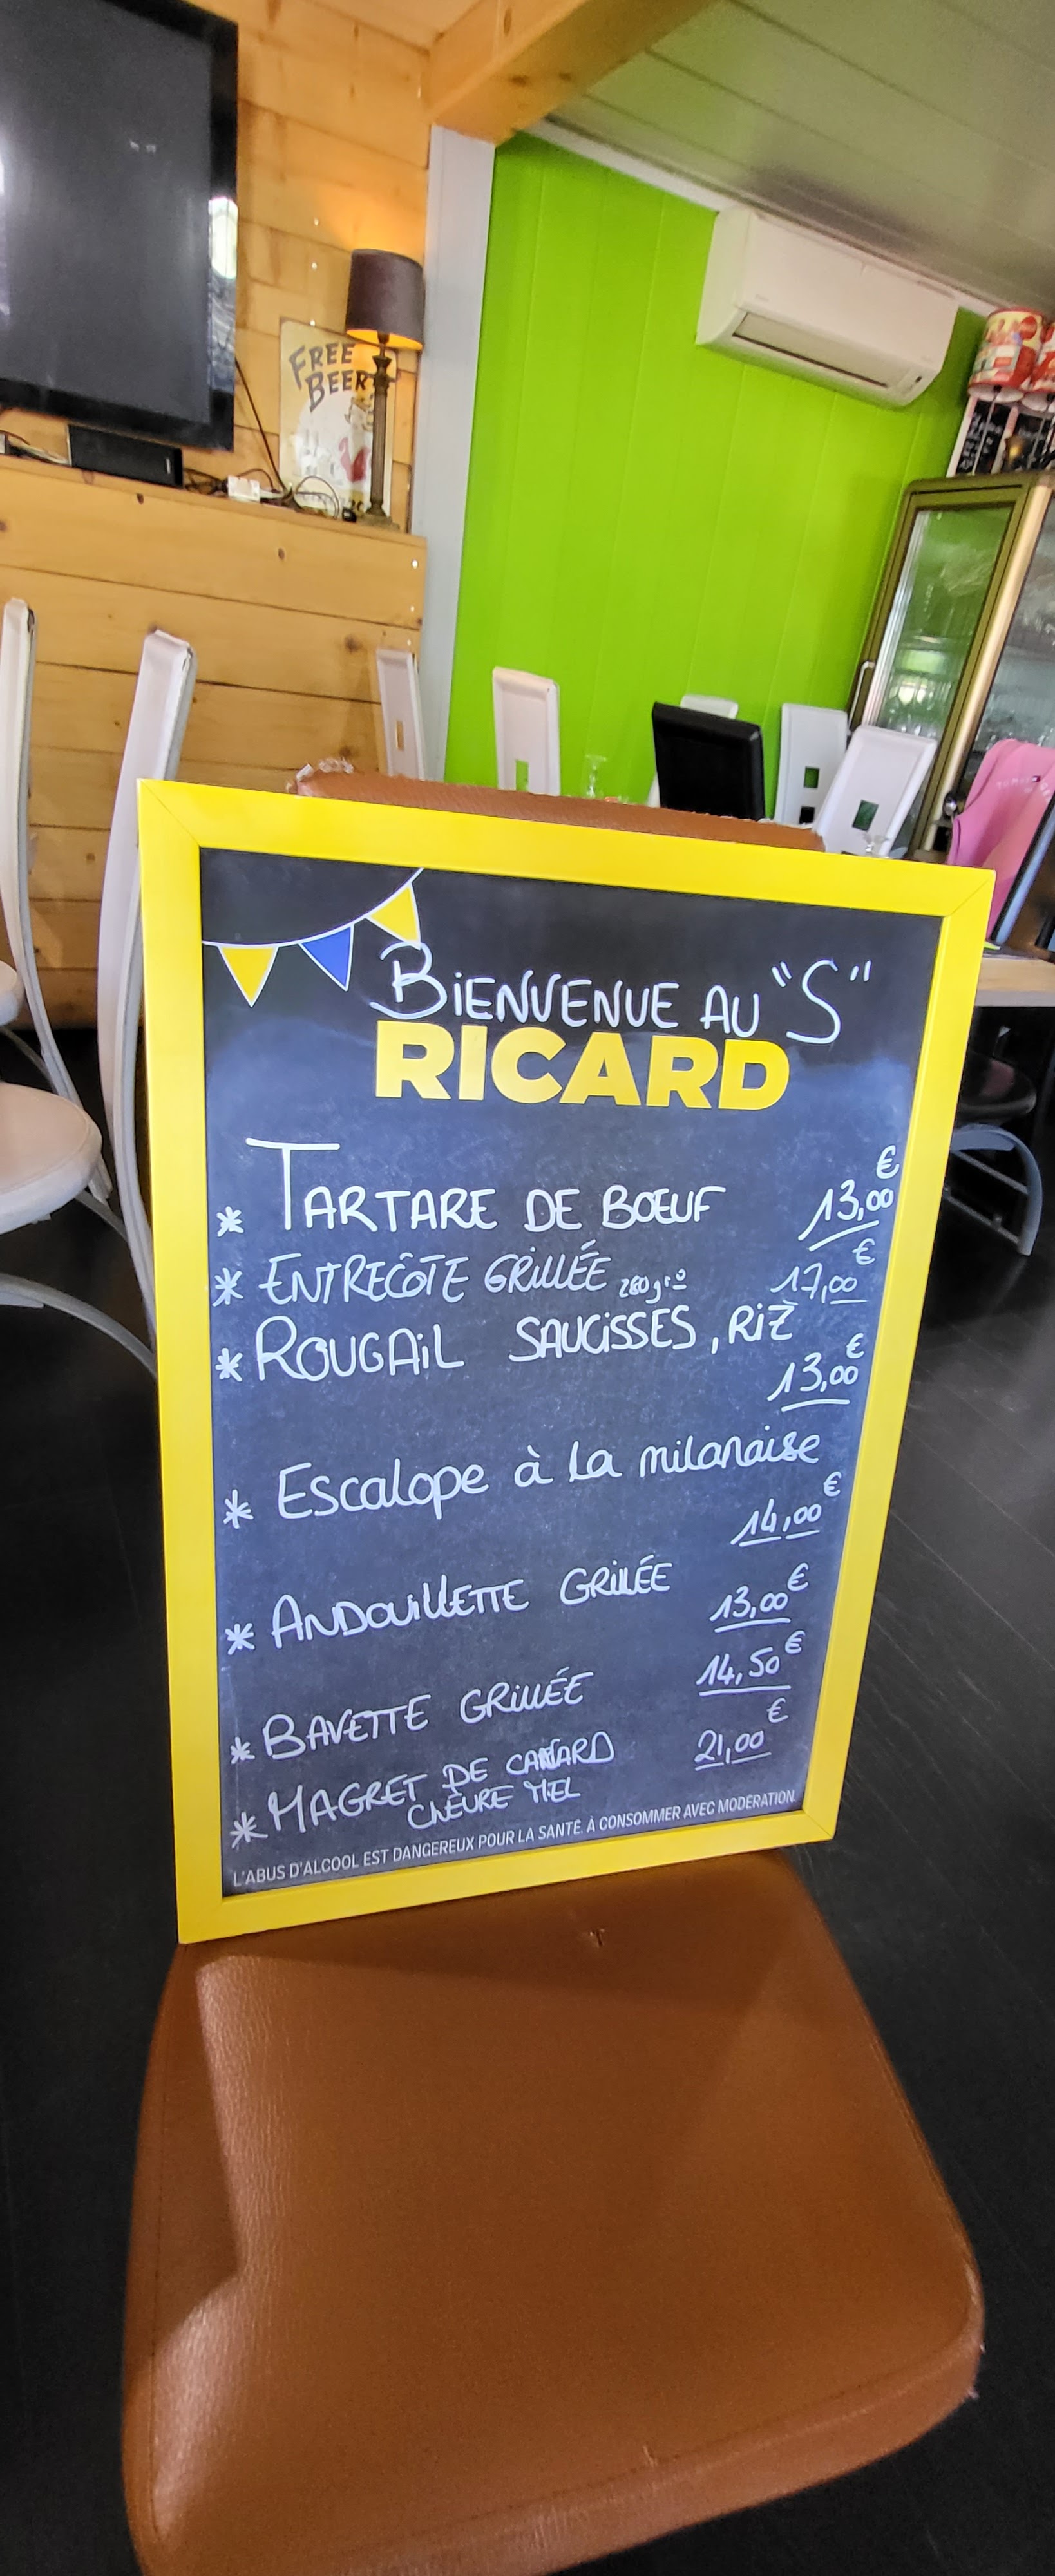 FREE
BEER
BIENVENUE AU "S"
RICARD
* TARTARE DE BOEUF 13,00€
* ENTRECÔTE GRILLÉE 280gr 17,00€
* ROUGAIL SAUCISSES, RIZ
13,00€
* Escalope à la milanaise
14,00€
* ANDOUILLETTE GRILLÉE 13,00€
* BAVETTE GRILLÉE 14,50€
* MAGRET DE CANARD 21,00€
CHÈVRE MIEL
L'ABUS D'ALCOOL EST DANGEREUX POUR LA SANTÉ. À CONSOMMER AVEC MODÉRATION.